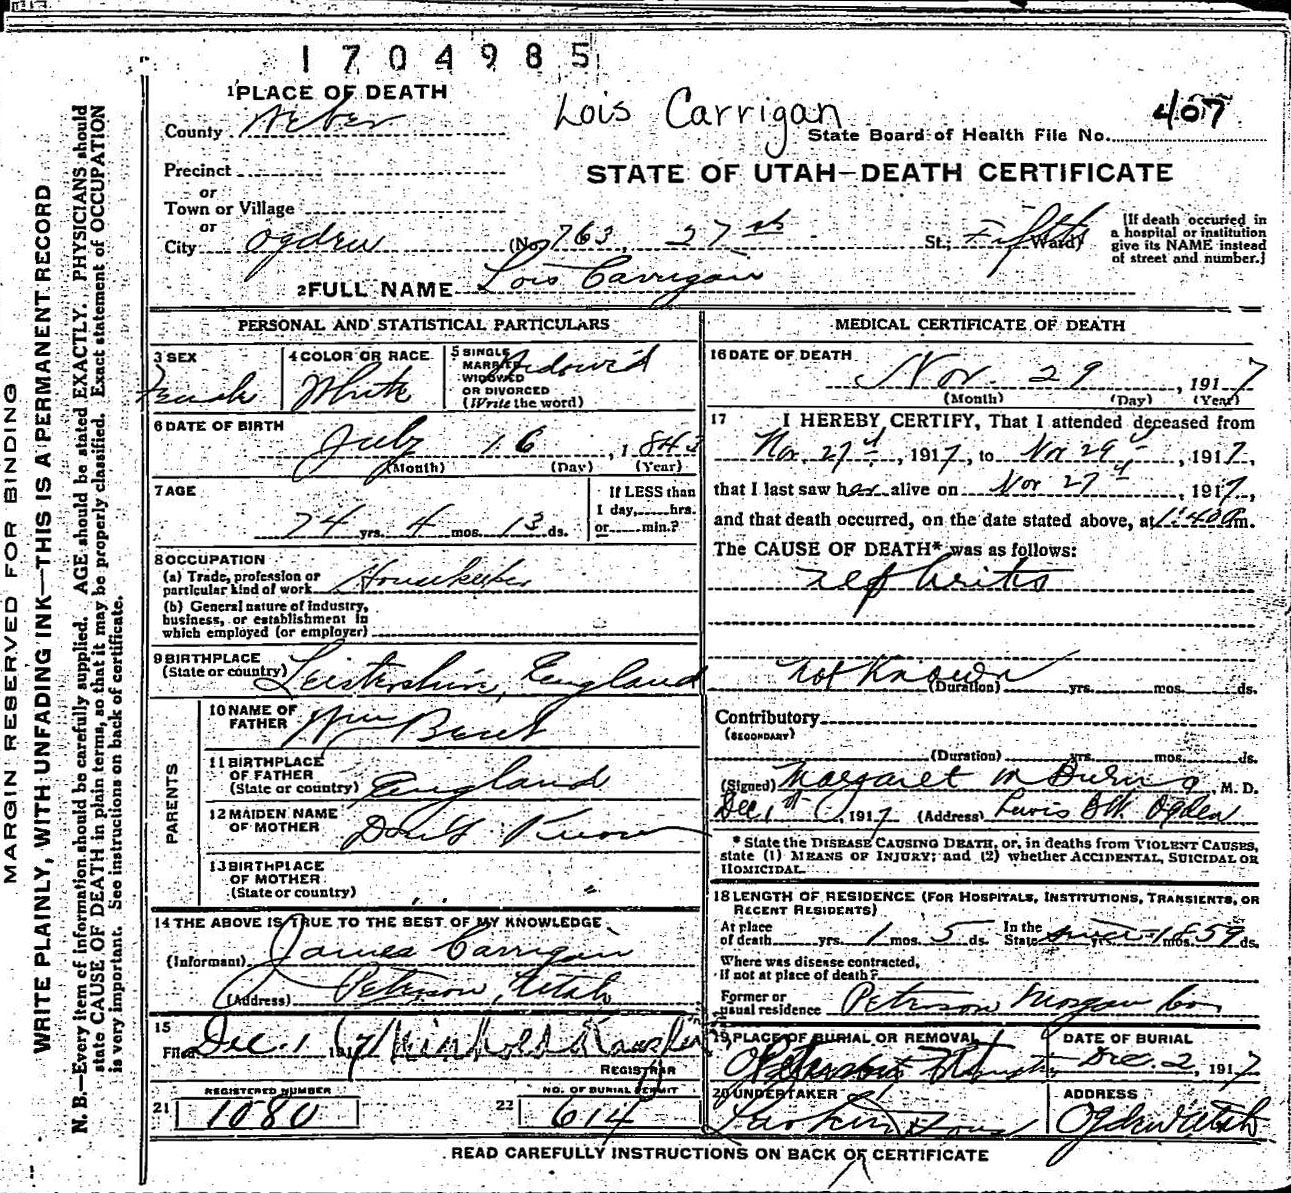 1704985
1 PLACE OF DEATH
Lois Carrigan
County Weber
State Board of Health File No. 407
Precinct
or
STATE OF UTAH—DEATH CERTIFICATE
Town or Village
or
City Ogden (No. 763, 27th St.; Fifth Ward)
[If death occurred in a hospital or institution give its NAME instead of street and number.]
2 FULL NAME Lois Carrigan
PERSONAL AND STATISTICAL PARTICULARS
3 SEX Female
4 COLOR OR RACE White
5 SINGLE MARRIED WIDOWED OR DIVORCED (Write the word) Widowed
6 DATE OF BIRTH
July 16, 1843
(Month) (Day) (Year)
7 AGE
74 yrs. 4 mos. 13 ds.
If LESS than 1 day, hrs. or min.?
8 OCCUPATION
(a) Trade, profession or particular kind of work Housekeeper
(b) General nature of industry, business, or establishment in which employed (or employer)
9 BIRTHPLACE (State or country) Leistershire, England
PARENTS
10 NAME OF FATHER Wm
11 BIRTHPLACE OF FATHER (State or country) England
12 MAIDEN NAME OF MOTHER Don't Know
13 BIRTHPLACE OF MOTHER (State or country) "
14 THE ABOVE IS TRUE TO THE BEST OF MY KNOWLEDGE
(Informant) James Carrigan
(Address) Peterson, Utah
15
Filed Dec. 1 1917
REGISTRAR
21 REGISTERED NUMBER 1080
22 NO. OF BURIAL PERMIT 614
MEDICAL CERTIFICATE OF DEATH
16 DATE OF DEATH
Nov. 29, 1917
(Month) (Day) (Year)
17 I HEREBY CERTIFY, That I attended deceased from
Nov. 27th, 1917, to Nov 29th, 1917,
that I last saw her alive on Nov 27th, 1917,
and that death occurred, on the date stated above, at 1:40 m.
The CAUSE OF DEATH* was as follows:
Nephritis
not Known
(Duration) yrs. mos. ds.
Contributory
(SECONDARY)
(Duration) yrs. mos. ds.
(Signed) Margaret M, M. D.
Dec 1st, 1917 (Address) Ogden
* State the DISEASE CAUSING DEATH, or, in deaths from VIOLENT CAUSES, state (1) MEANS OF INJURY; and (2) whether ACCIDENTAL, SUICIDAL OR HOMICIDAL.
18 LENGTH OF RESIDENCE (FOR HOSPITALS, INSTITUTIONS, TRANSIENTS, OR RECENT RESIDENTS)
At place of death yrs. 1 mos. 5 ds. In the State since 1859 yrs. mos. ds.
Where was disease contracted, if not at place of death?
Former or usual residence Peterson Morgan Co
19 PLACE OF BURIAL OR REMOVAL
DATE OF BURIAL
Dec. 2, 1917
20 UNDERTAKER
Larkin & Sons
ADDRESS
Ogden Utah
READ CAREFULLY INSTRUCTIONS ON BACK OF CERTIFICATE
MARGIN RESERVED FOR BINDING
WRITE PLAINLY, WITH UNFADING INK—THIS IS A PERMANENT RECORD
N. B.—Every item of information should be carefully supplied. AGE should be stated EXACTLY. PHYSICIANS should
state CAUSE OF DEATH in plain terms, so that it may be properly classified. Exact statement of OCCUPATION
is very important. See instructions on back of certificate.